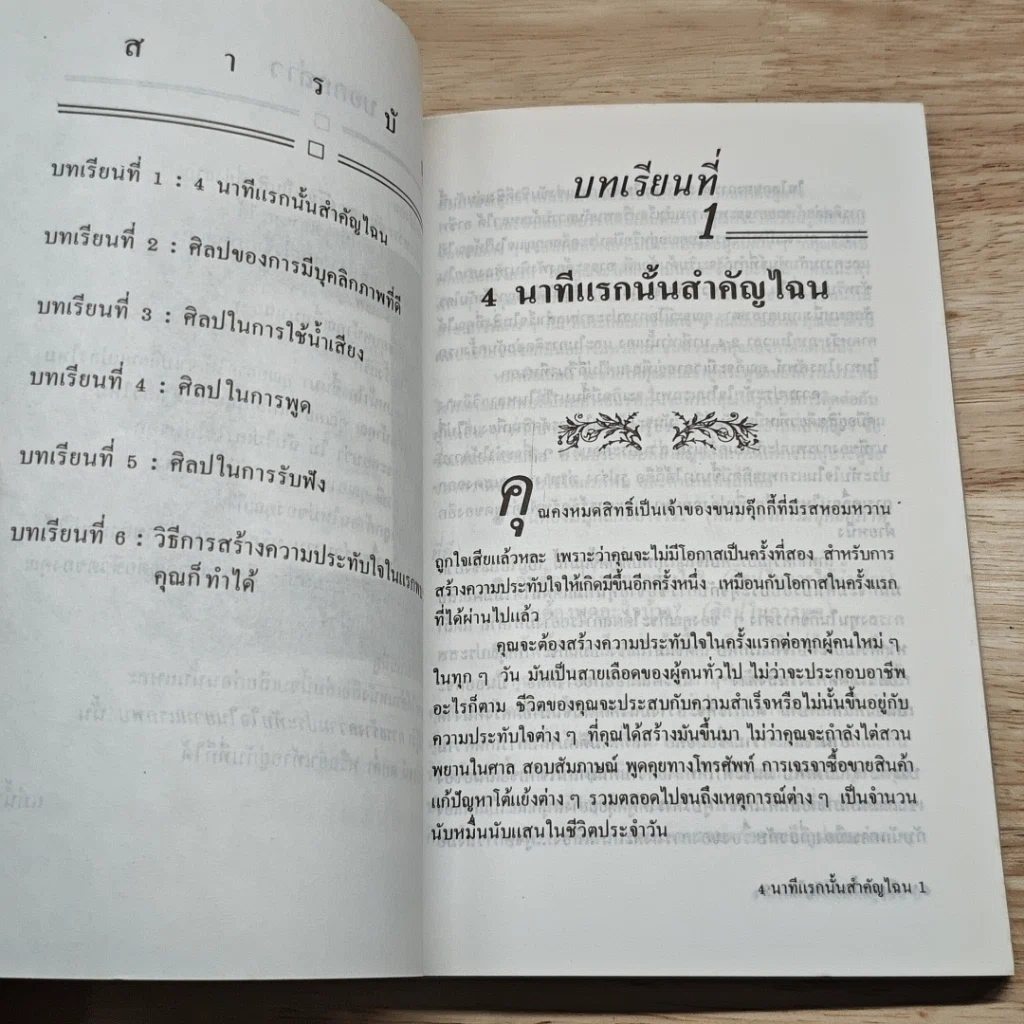 ส า ร บั
บทเรียนที่ 1 : 4 นาทีแรกนั้นสำคัญไฉน
บทเรียนที่ 2 : ศิลปของการมีบุคลิกภาพที่ดี
บทเรียนที่ 3 : ศิลปในการใช้น้ำเสียง
บทเรียนที่ 4 : ศิลปในการพูด
บทเรียนที่ 5 : ศิลปในการรับฟัง
บทเรียนที่ 6 : วิธีการสร้างความประทับใจในแรกพบ
คุณก็ทำได้
บทเรียนที่
1
4 นาทีแรกนั้นสำคัญไฉน
คุณคงหมดสิทธิ์เป็นเจ้าของขนมคุ๊กกี้ที่มีรสหอมหวาน
ถูกใจเสียแล้วหละ เพราะว่าคุณจะไม่มีโอกาสเป็นครั้งที่สอง สำหรับการ
สร้างความประทับใจให้เกิดมีขึ้นอีกครั้งหนึ่ง เหมือนกับโอกาสในครั้งแรก
ที่ได้ผ่านไปแล้ว
คุณจะต้องสร้างความประทับใจในครั้งแรกต่อทุกผู้คนใหม่ ๆ
ในทุก ๆ วัน มันเป็นสายเลือดของผู้คนทั่วไป ไม่ว่าจะประกอบอาชีพ
อะไรก็ตาม ชีวิตของคุณจะประสบกับความสำเร็จหรือไม่นั้นขึ้นอยู่กับ
ความประทับใจต่าง ๆ ที่คุณได้สร้างมันขึ้นมา ไม่ว่าคุณจะกำลังไต่สวน
พยานในศาล สอบสัมภาษณ์ พูดคุยทางโทรศัพท์ การเจรจาซื้อขายสินค้า
แก้ปัญหาโต้แย้งต่าง ๆ รวมตลอดไปจนถึงเหตุการณ์ต่าง ๆ เป็นจำนวน
นับหมื่นนับแสนในชีวิตประจำวัน
4 นาทีแรกนั้นสำคัญไฉน 1